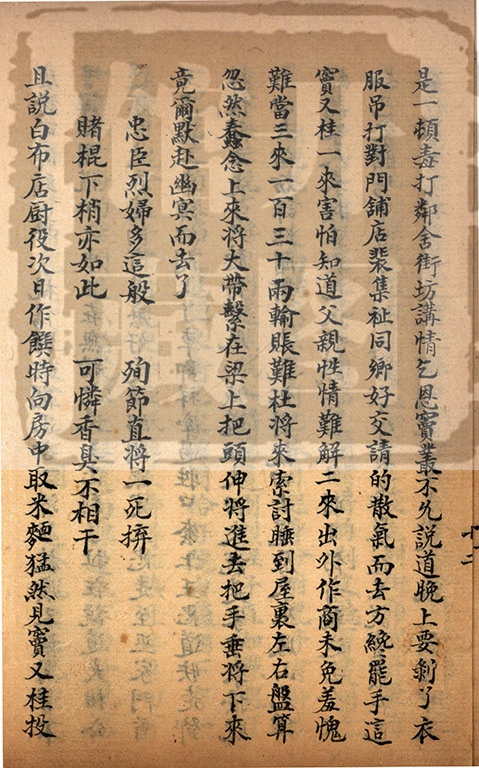 是一頓毒打鄰舍街坊講情乞恩竇叢不允說道晚上要剝了衣
服吊打對門舖店裴集祉同鄉好交請的散氣而去方纔罷手這
竇又桂一來害怕知道父親性情難解二來出外作商未免羞愧
難當三來一百三十兩輸賬難杜將來索討睡到屋裏左右盤算
忽然蠢念上來將大帶繫在梁上把頭伸將進去把手垂將下來
竟爾默赴幽冥而去了
忠臣烈婦多這般　殉節直將一死拚
賭棍下梢亦如此　可憐香臭不相干
且說白布店廚役次日作饌時向房中取米麵猛然見竇又桂投
十二